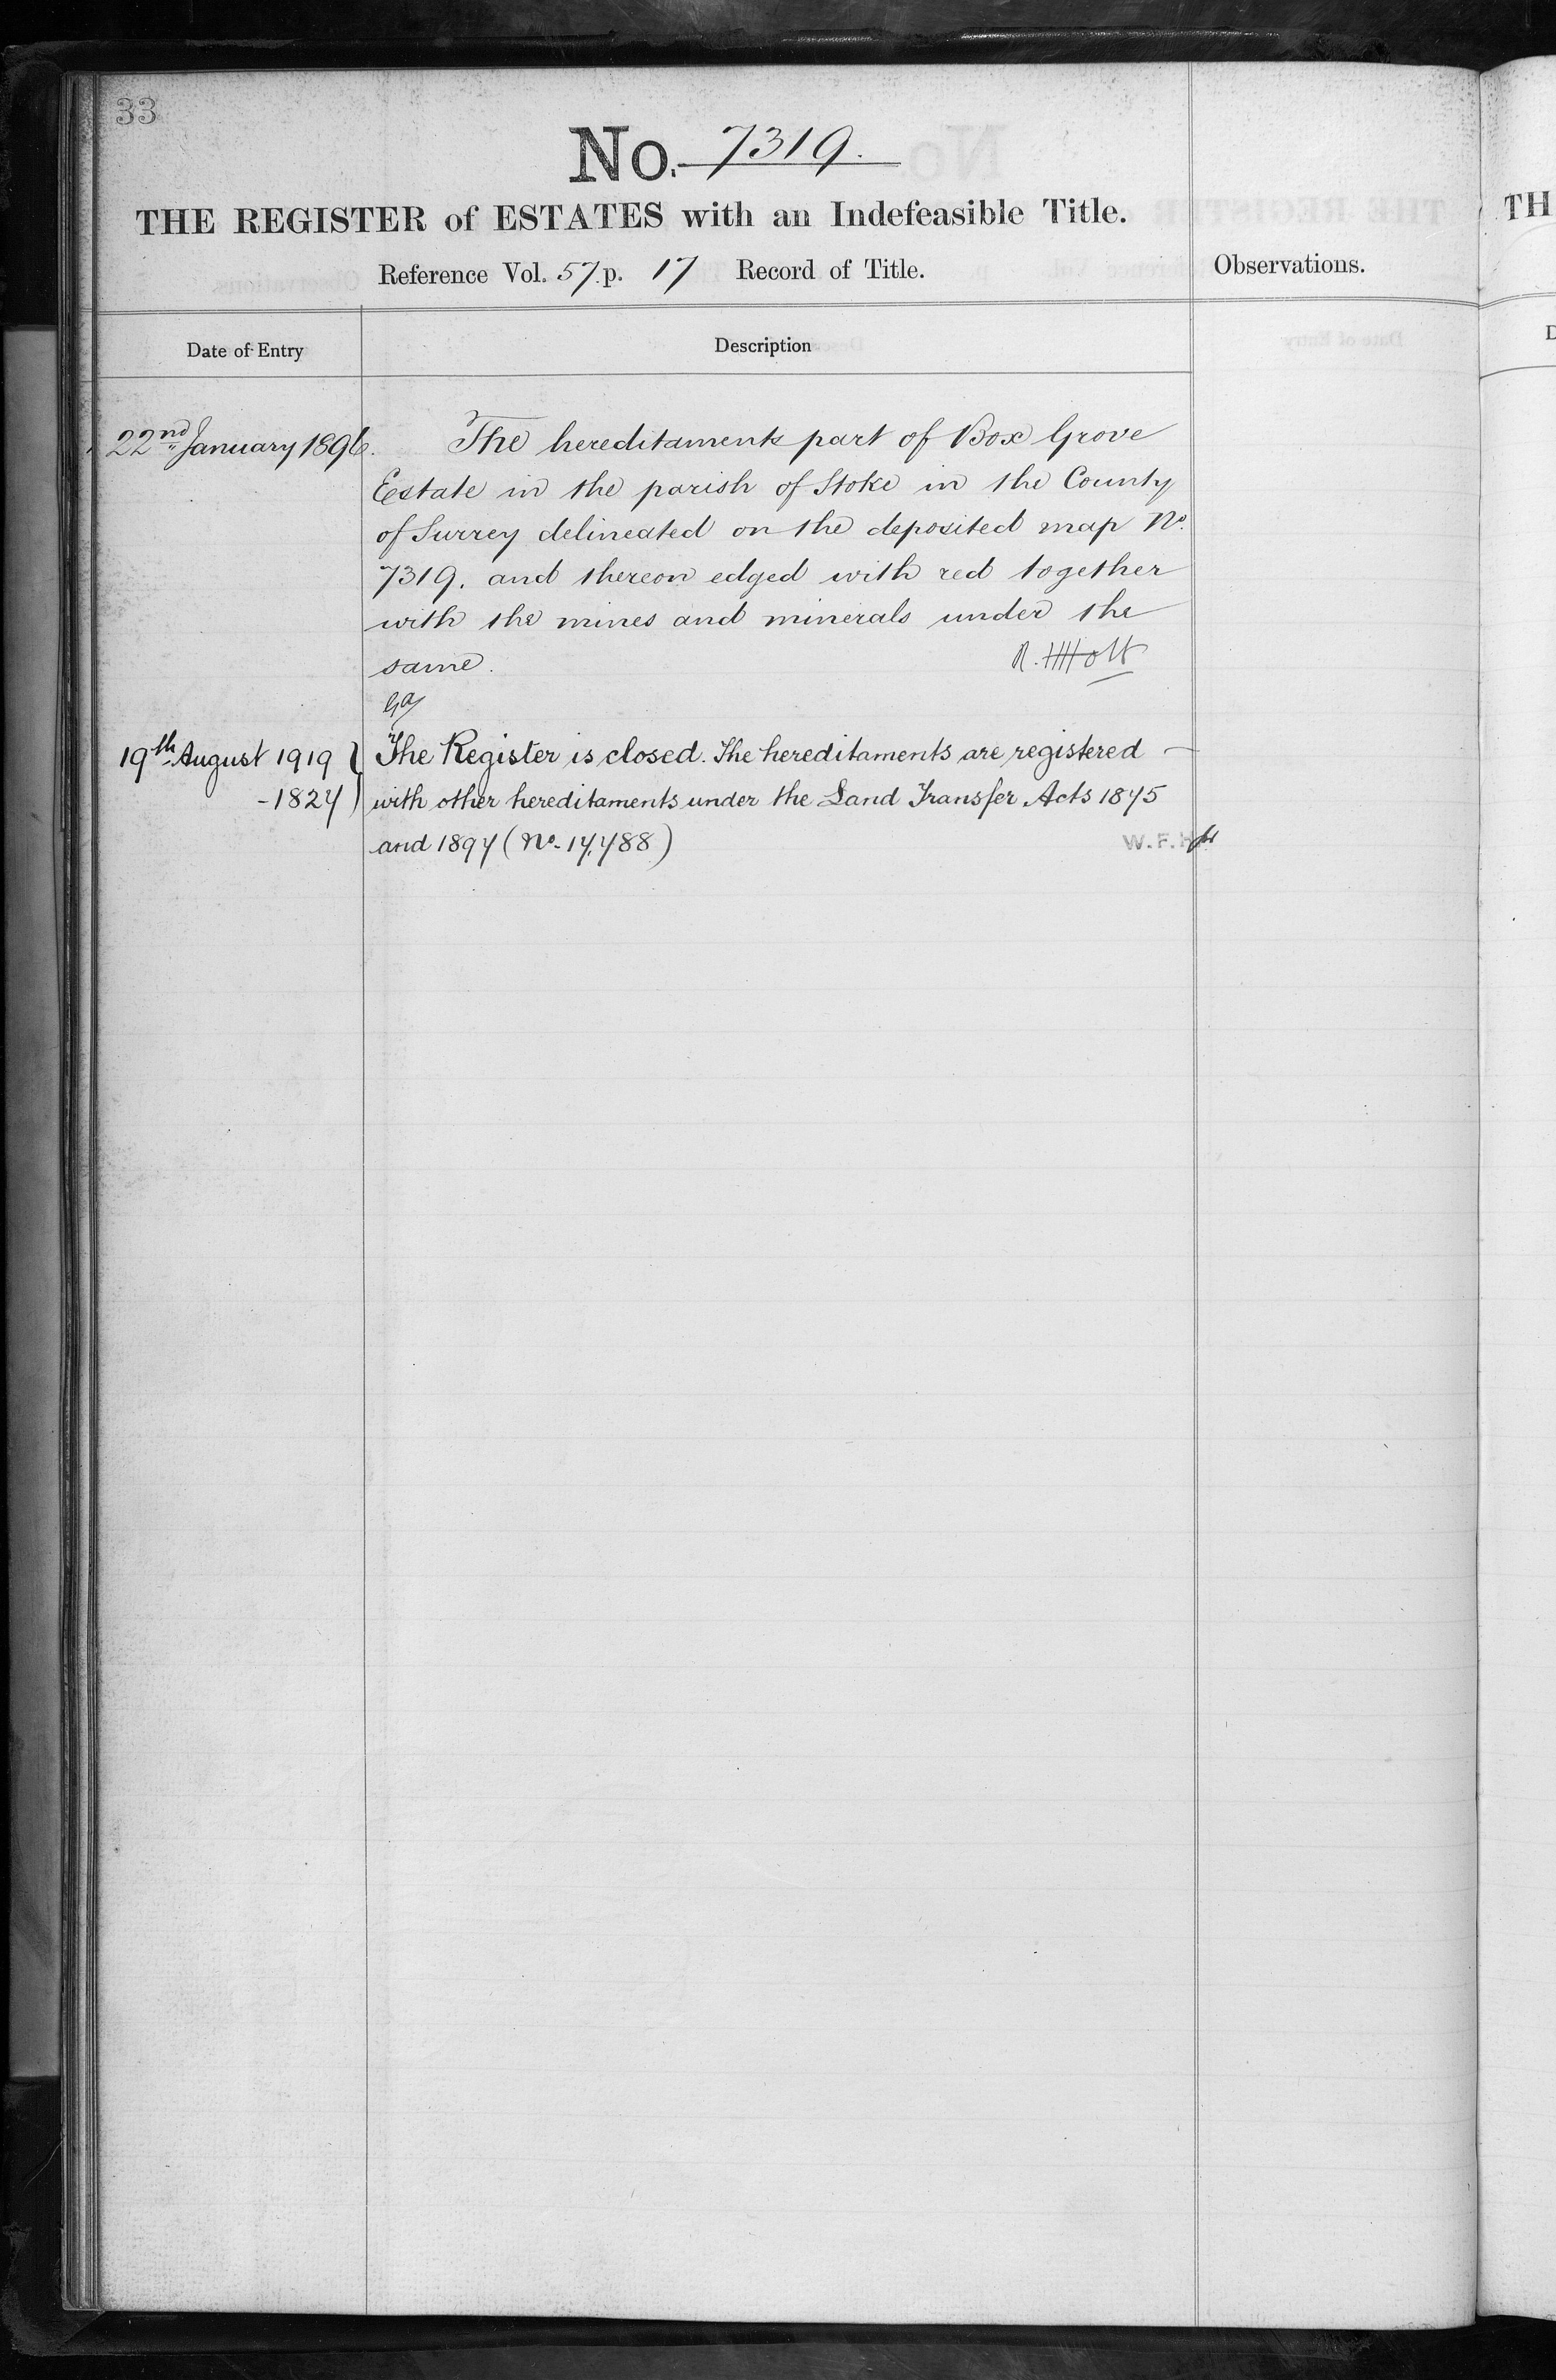 33
No. 7319.
THE REGISTER of ESTATES with an Indefeasible Title.
Reference Vol. 57. p. 17 Record of Title.
Observations.
Date of Entry
Description
22nd January 1896.
The hereditaments part of Box Grove
Estate in the parish of Stoke in the County
of Surrey delineated on the deposited map No.
7319. and thereon edged with red together
with the mines and minerals under the
same.
R. Holt
19th August 1919
-1827
The Register is closed. The hereditaments are registered
with other hereditaments under the Land Transfer Acts 1875
and 1897 (No. 17,788)
W.F.H
TH
D